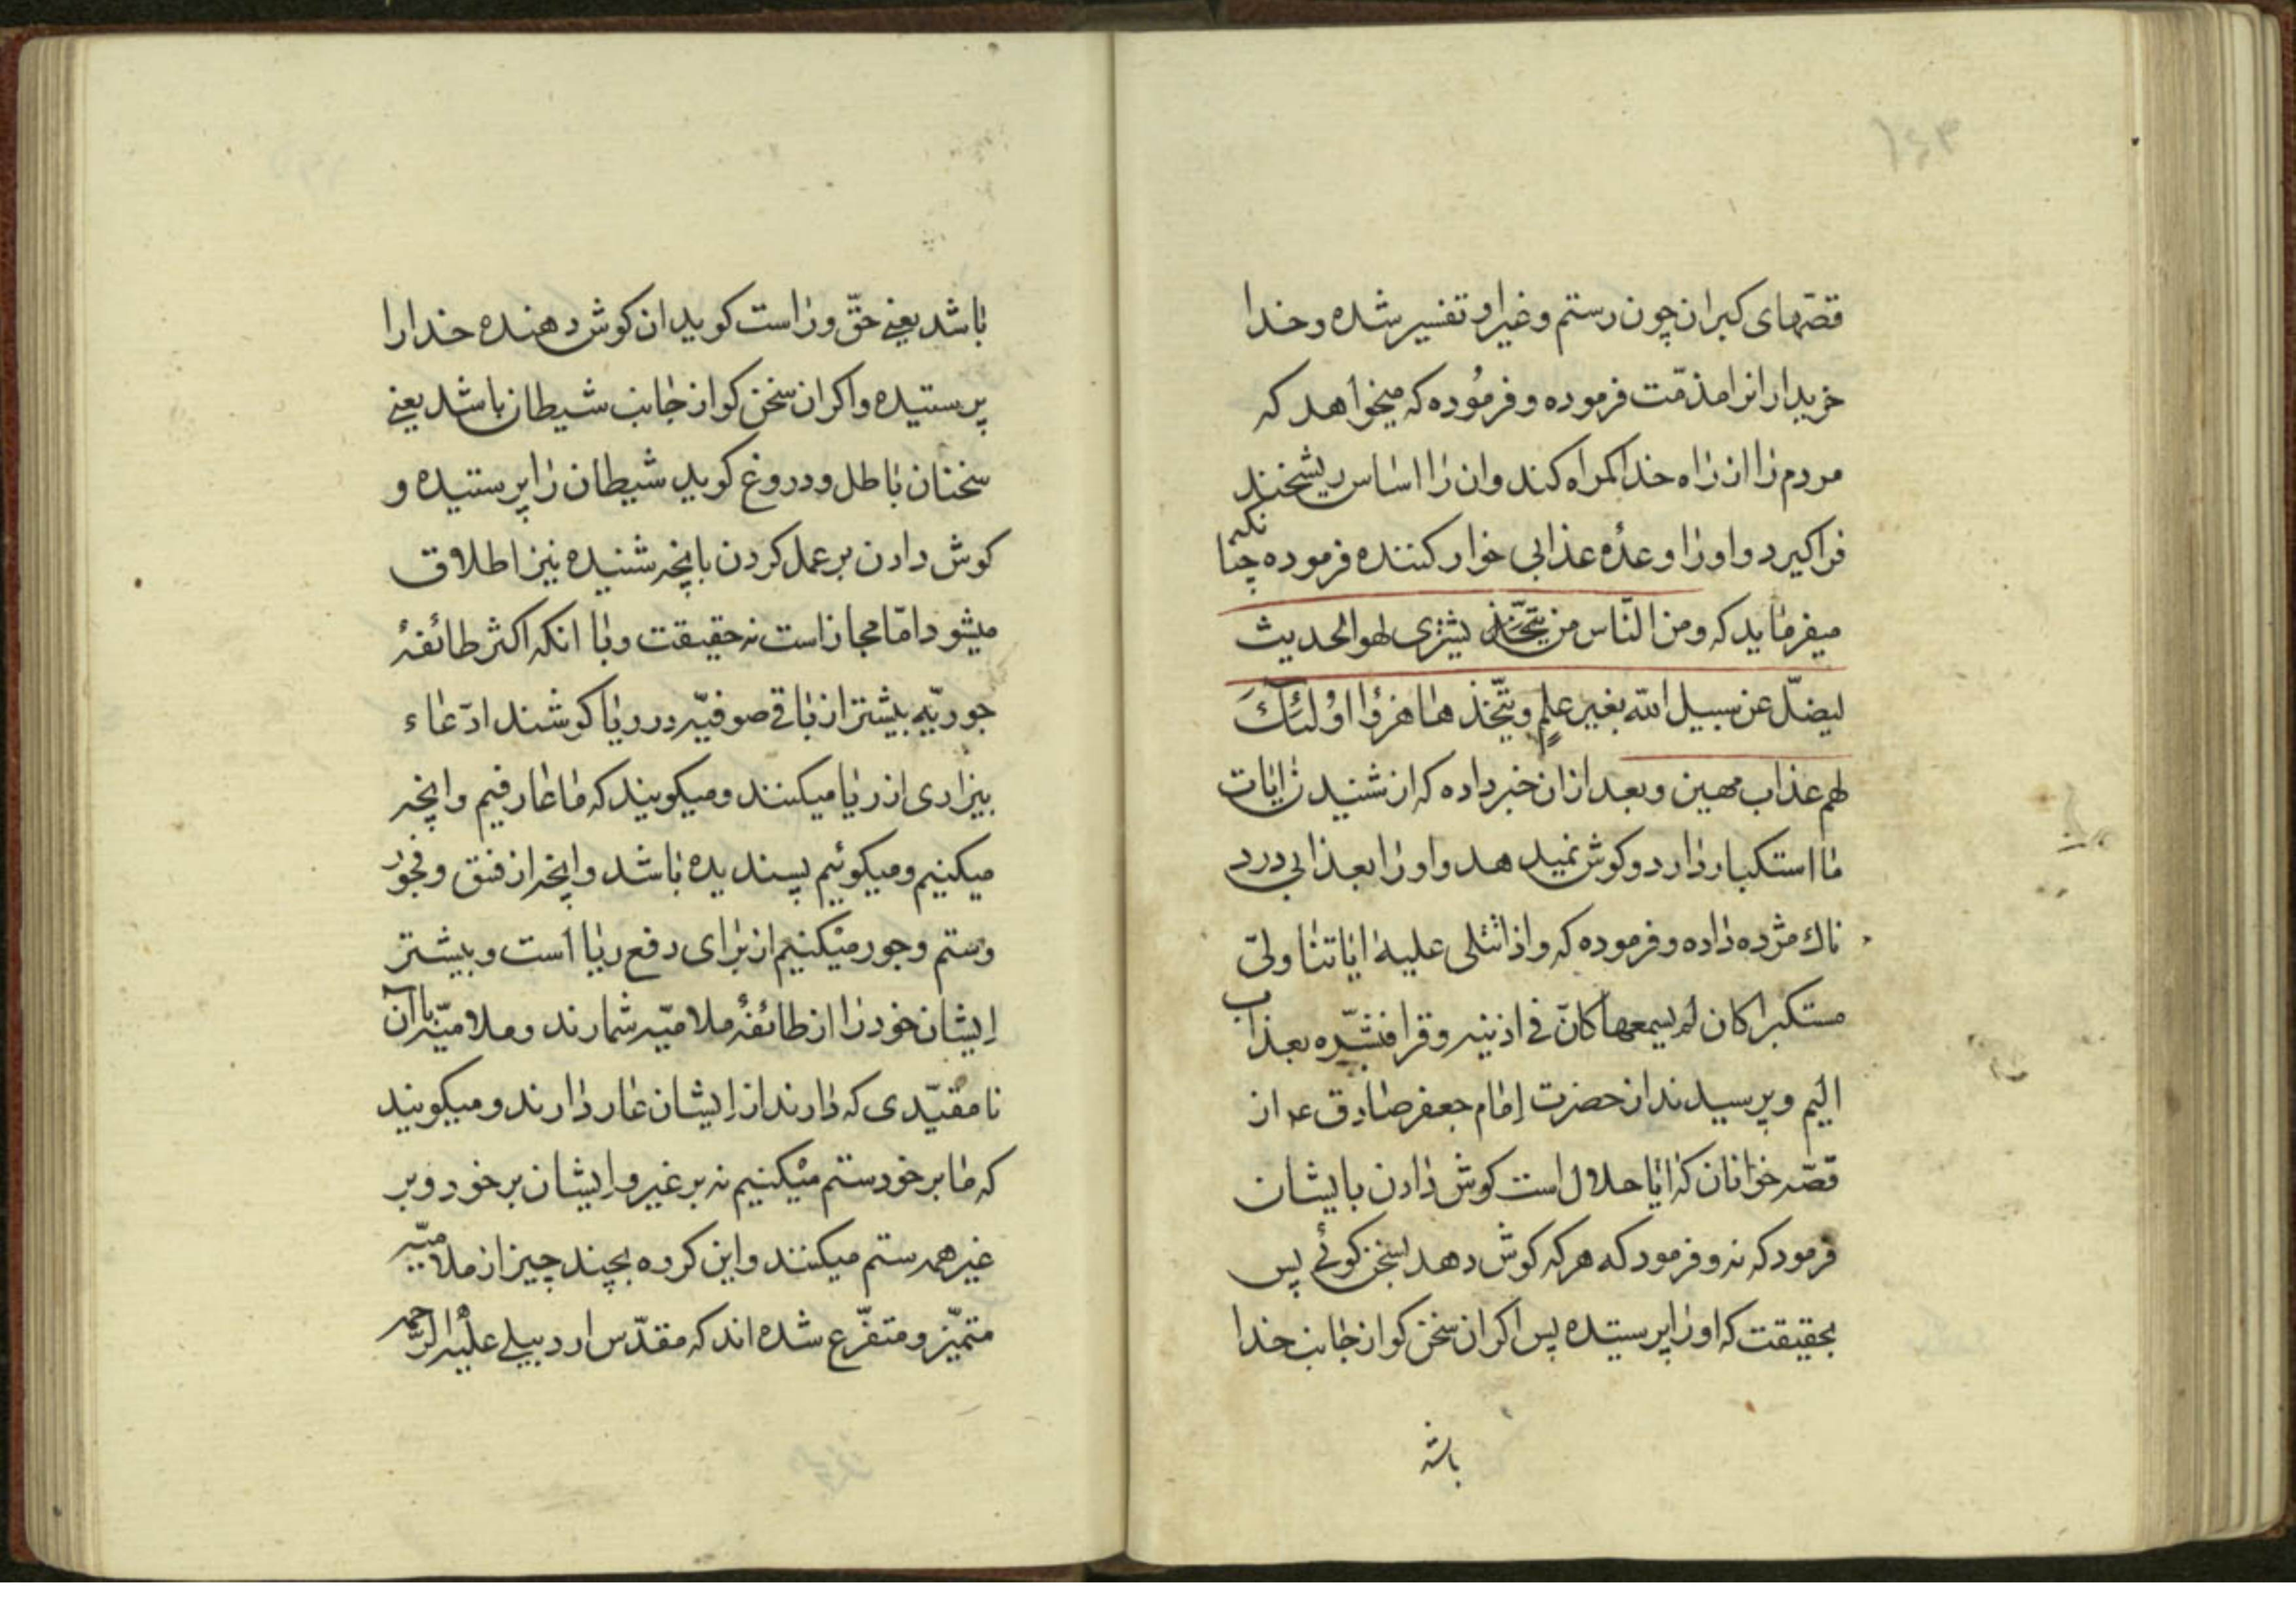 ۱۶۳
قصّهای کبران چون رستم و غیر او تفسیر شده و خدا
خریدار انرا مذمّت فرموده و فرمُوده که میخواهد که
مردم را از راه خدا کمراه کند و ان را اساس ریشخند
فرا کیرد و او را وعدهٔ عذابی خوار کننده فرموده چنا
نکه
میفرماید که ومن النّاس من یتّخذ یشتری لهو الحدیث
لیضلّ عن سبیل الله بغیر علمٍ و یتّخذ هٰا هزؤا اوُلئِكَ
لهم عذاب مهین و بعد از ان خبر داده که از شنیدن ایات
ما استکبار دارد و کوش نمیدهد و او را بعذابی درد
ناك مژده داده و فرموده که واذا تتلی علیه ایاتنا ولّی
مستکبرا کان لم یسمعها کانّ فی اذنیه وقرا فبشّره بعذاب
الیم و پرسیدند از حضرت اِمام جعفر صادق عه از
قصّه خوانان که ایا حلال است کوش دادن بایشان
فرمود که نه و فرمود که هر که کوش دهد بسخن کوئی پس
بحقیقت که او را پرستیده پس اکر ان سخن کو از جانب خدا
باشد
باشد یعنی حقّ و راست کوید ان کوش دهنده خدا را
پرستیده و اکر ان سخن کو از جانب شیطان باشد یعنی
سخنان باطل و دروغ کوید شیطان را پرستیده و
کوش دادن بر عمل کردن بانچه شنیده نیز اطلاق
میشود امّا مجاز است نه حقیقت و با انکه اکثر طائفهٔ
جوریّه بیشتر از باقی صوفیّه در ریا کوشند ادّعاء
بیزاری از ریا میکنند و میکویند که ما عارفیم و انچه
میکنیم و میکوئیم پسندیده باشد و انچه از فسق و فجور
و ستم و جور میکنیم از برای دفع ریا است و بیشتر
اِیشان خود را از طائفهٔ ملامیّه شمارند و ملامیّه با آن
نا مقیّدی که دارند از اِیشان عار دارند و میکویند
که ما بر خود ستم میکنیم نه بر غیر و اِیشان بر خود و بر
غیر همه ستم میکنند و این کروه بچند چیز از ملامیّه
متمیّز و متفرّع شده اند که مقدّس اردبیلی علیه الرّحمه